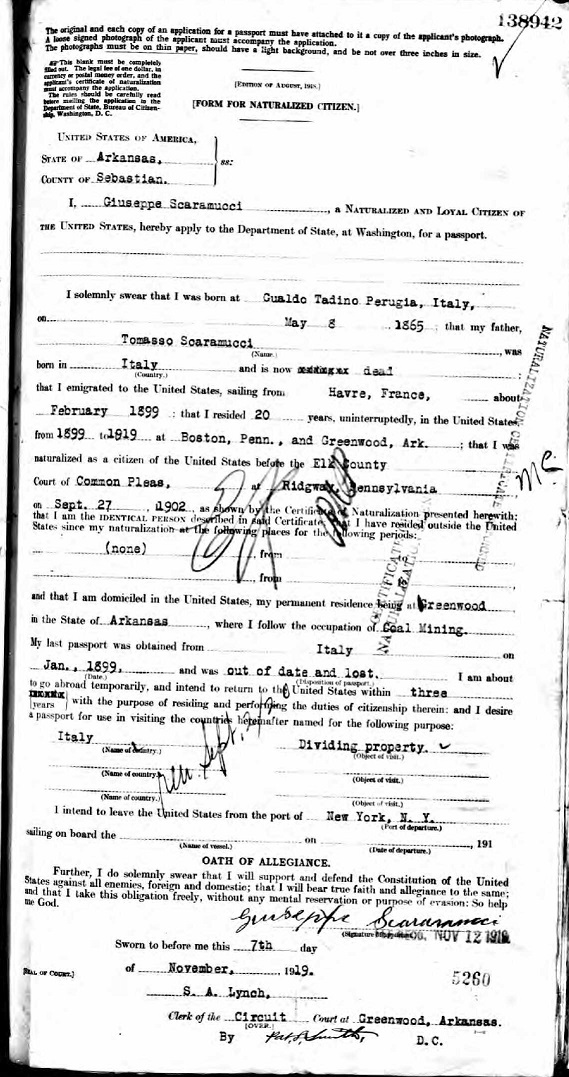 138942
The original and each copy of an application for a passport must have attached to it a copy of the applicant's photograph.
A loose signed photograph of the applicant must accompany the application.
The photographs must be on thin paper, should have a light background, and be not over three inches in size.
This blank must be completely
filled out. The legal fee of one dollar, in
currency or postal money order, and the
applicant's certificate of naturalization
must accompany the application.
The rules should be carefully read
before mailing the application to the
Department of State, Bureau of Citizen-
ship, Washington, D. C.
[EDITION OF AUGUST, 1918.]
[FORM FOR NATURALIZED CITIZEN.]
UNITED STATES OF AMERICA,
STATE OF Arkansas,
ss:
COUNTY OF Sebastian.
I, Giuseppe Scaramucci, a NATURALIZED AND LOYAL CITIZEN OF
THE UNITED STATES, hereby apply to the Department of State, at Washington, for a passport.
I solemnly swear that I was born at Gualdo Tadino Perugia, Italy,
on May 8 1865; that my father,
Tomasso Scaramucci, was
(Name.)
born in Italy and is now dead;
(Country.)
that I emigrated to the United States, sailing from Havre, France, about
February 1899 : that I resided 20 years, uninterruptedly, in the United States,
from 1899 to 1919 at Boston, Penn., and Greenwood, Ark. ; that I was
naturalized as a citizen of the United States before the Elk County
Court of Common Pleas, at Ridgway, Pennsylvania
on Sept. 27 , 1902, as shown by the Certificate of Naturalization presented herewith;
that I am the IDENTICAL PERSON described in said Certificate; that I have resided outside the United
States since my naturalization at the following places for the following periods:
(none) , from
, from
and that I am domiciled in the United States, my permanent residence being at Greenwood
in the State of Arkansas , where I follow the occupation of Coal Mining.
My last passport was obtained from Italy on
Jan., 1899, and was out of date and lost. I am about
(Date.) (Disposition of passport.)
to go abroad temporarily, and intend to return to the United States within three
years with the purpose of residing and performing the duties of citizenship therein: and I desire
a passport for use in visiting the countries hereinafter named for the following purpose:
Italy Dividing property.
(Name of country.) (Object of visit.)
(Name of country.) (Object of visit.)
(Name of country.) (Object of visit.)
I intend to leave the United States from the port of New York, N. Y.
(Port of departure.)
sailing on board the on , 191
(Name of vessel.) (Date of departure.)
OATH OF ALLEGIANCE.
Further, I do solemnly swear that I will support and defend the Constitution of the United
States against all enemies, foreign and domestic; that I will bear true faith and allegiance to the same;
and that I take this obligation freely, without any mental reservation or purpose of evasion: So help
me God.
Giuseppe Scaramucci
(Signature NOV 12 1919
Sworn to before me this 7th day
of November, 1919.
[SEAL OF COURT.]
5260
S. A. Lynch,
Clerk of the Circuit Court at Greenwood, Arkansas.
[OVER.]
By D. C.
NATURALIZATION CERTIFICATE
CERTIFICATE
NATURALIZATION